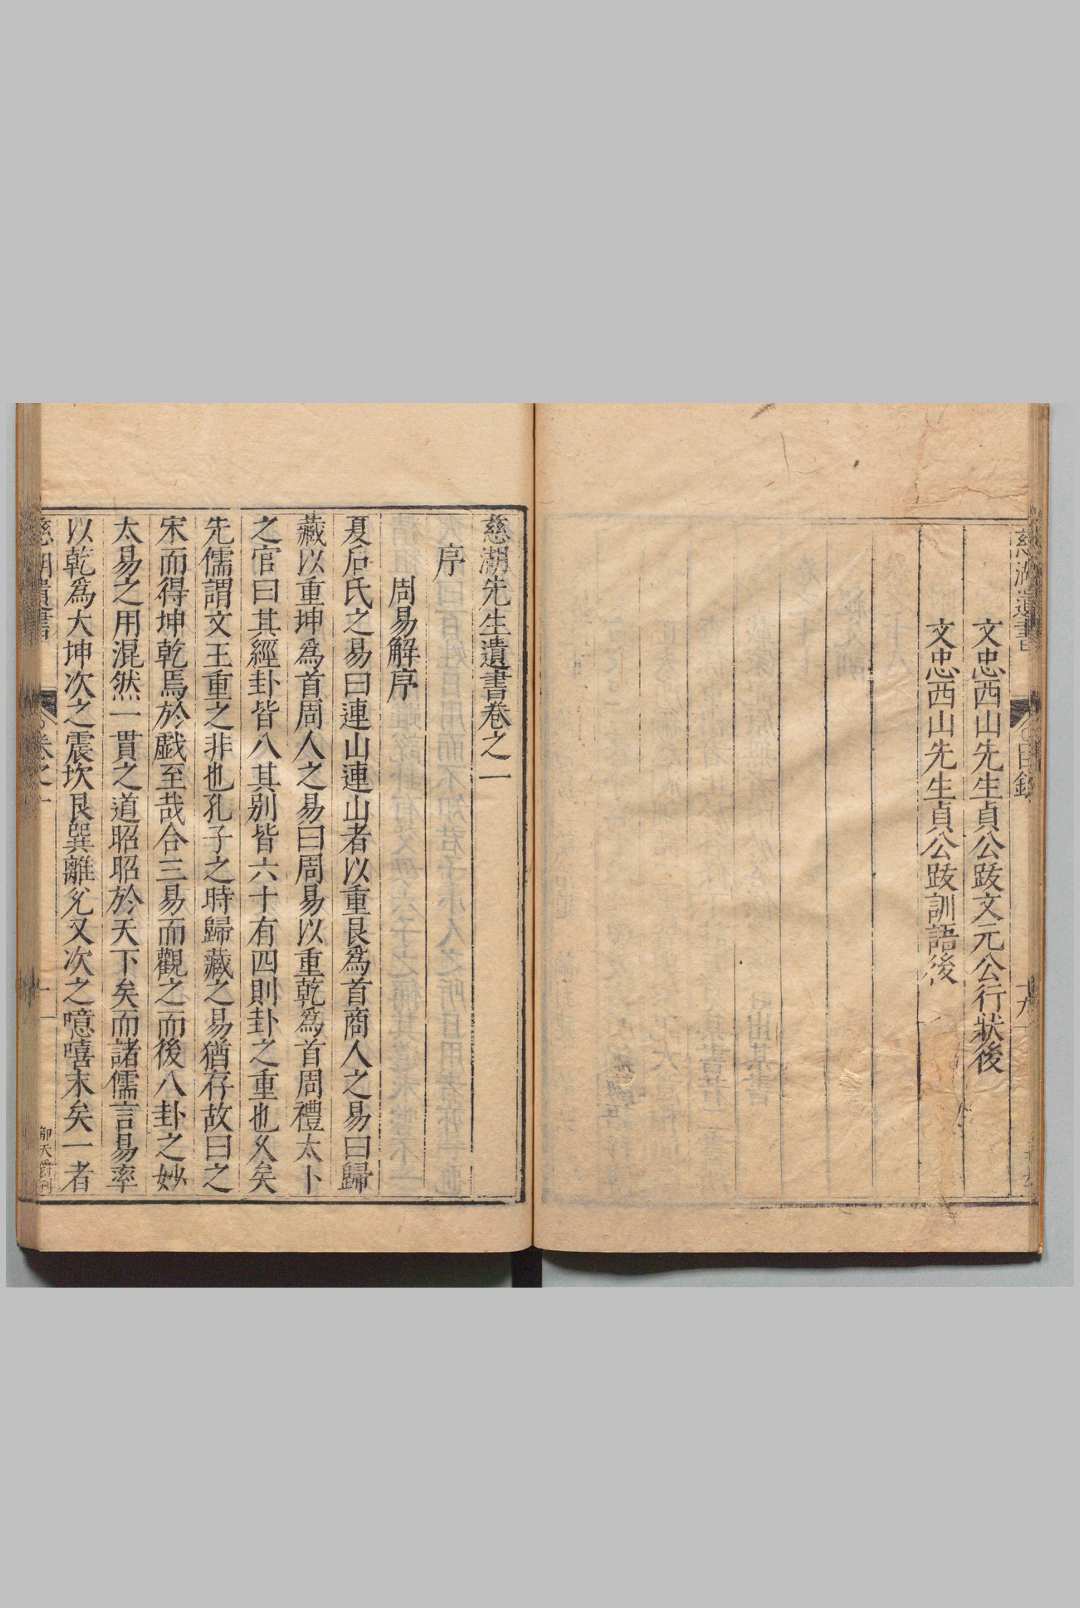 文忠西山先生貞公跋文元公行狀後
文忠西山先生貞公跋訓語後
慈湖遺書
目錄
十九
慈湖先生遺書卷之一
序
周易解序
夏后氏之易曰連山連山者以重艮爲首商人之易曰歸
藏以重坤爲首周人之易曰周易以重乾爲首周禮太卜
之官曰其經卦皆八其别皆六十有四則卦之重也久矣
先儒謂文王重之非也孔子之時歸藏之易猶存故曰之
宋而得坤乾焉於戯至哉合三易而觀之而後八卦之妙
太易之用混然一貫之道昭昭於天下矣而諸儒言易率
以乾爲大坤次之震坎艮巽離兊又次之噫嘻末矣一者
慈湖遺書
卷之一
一